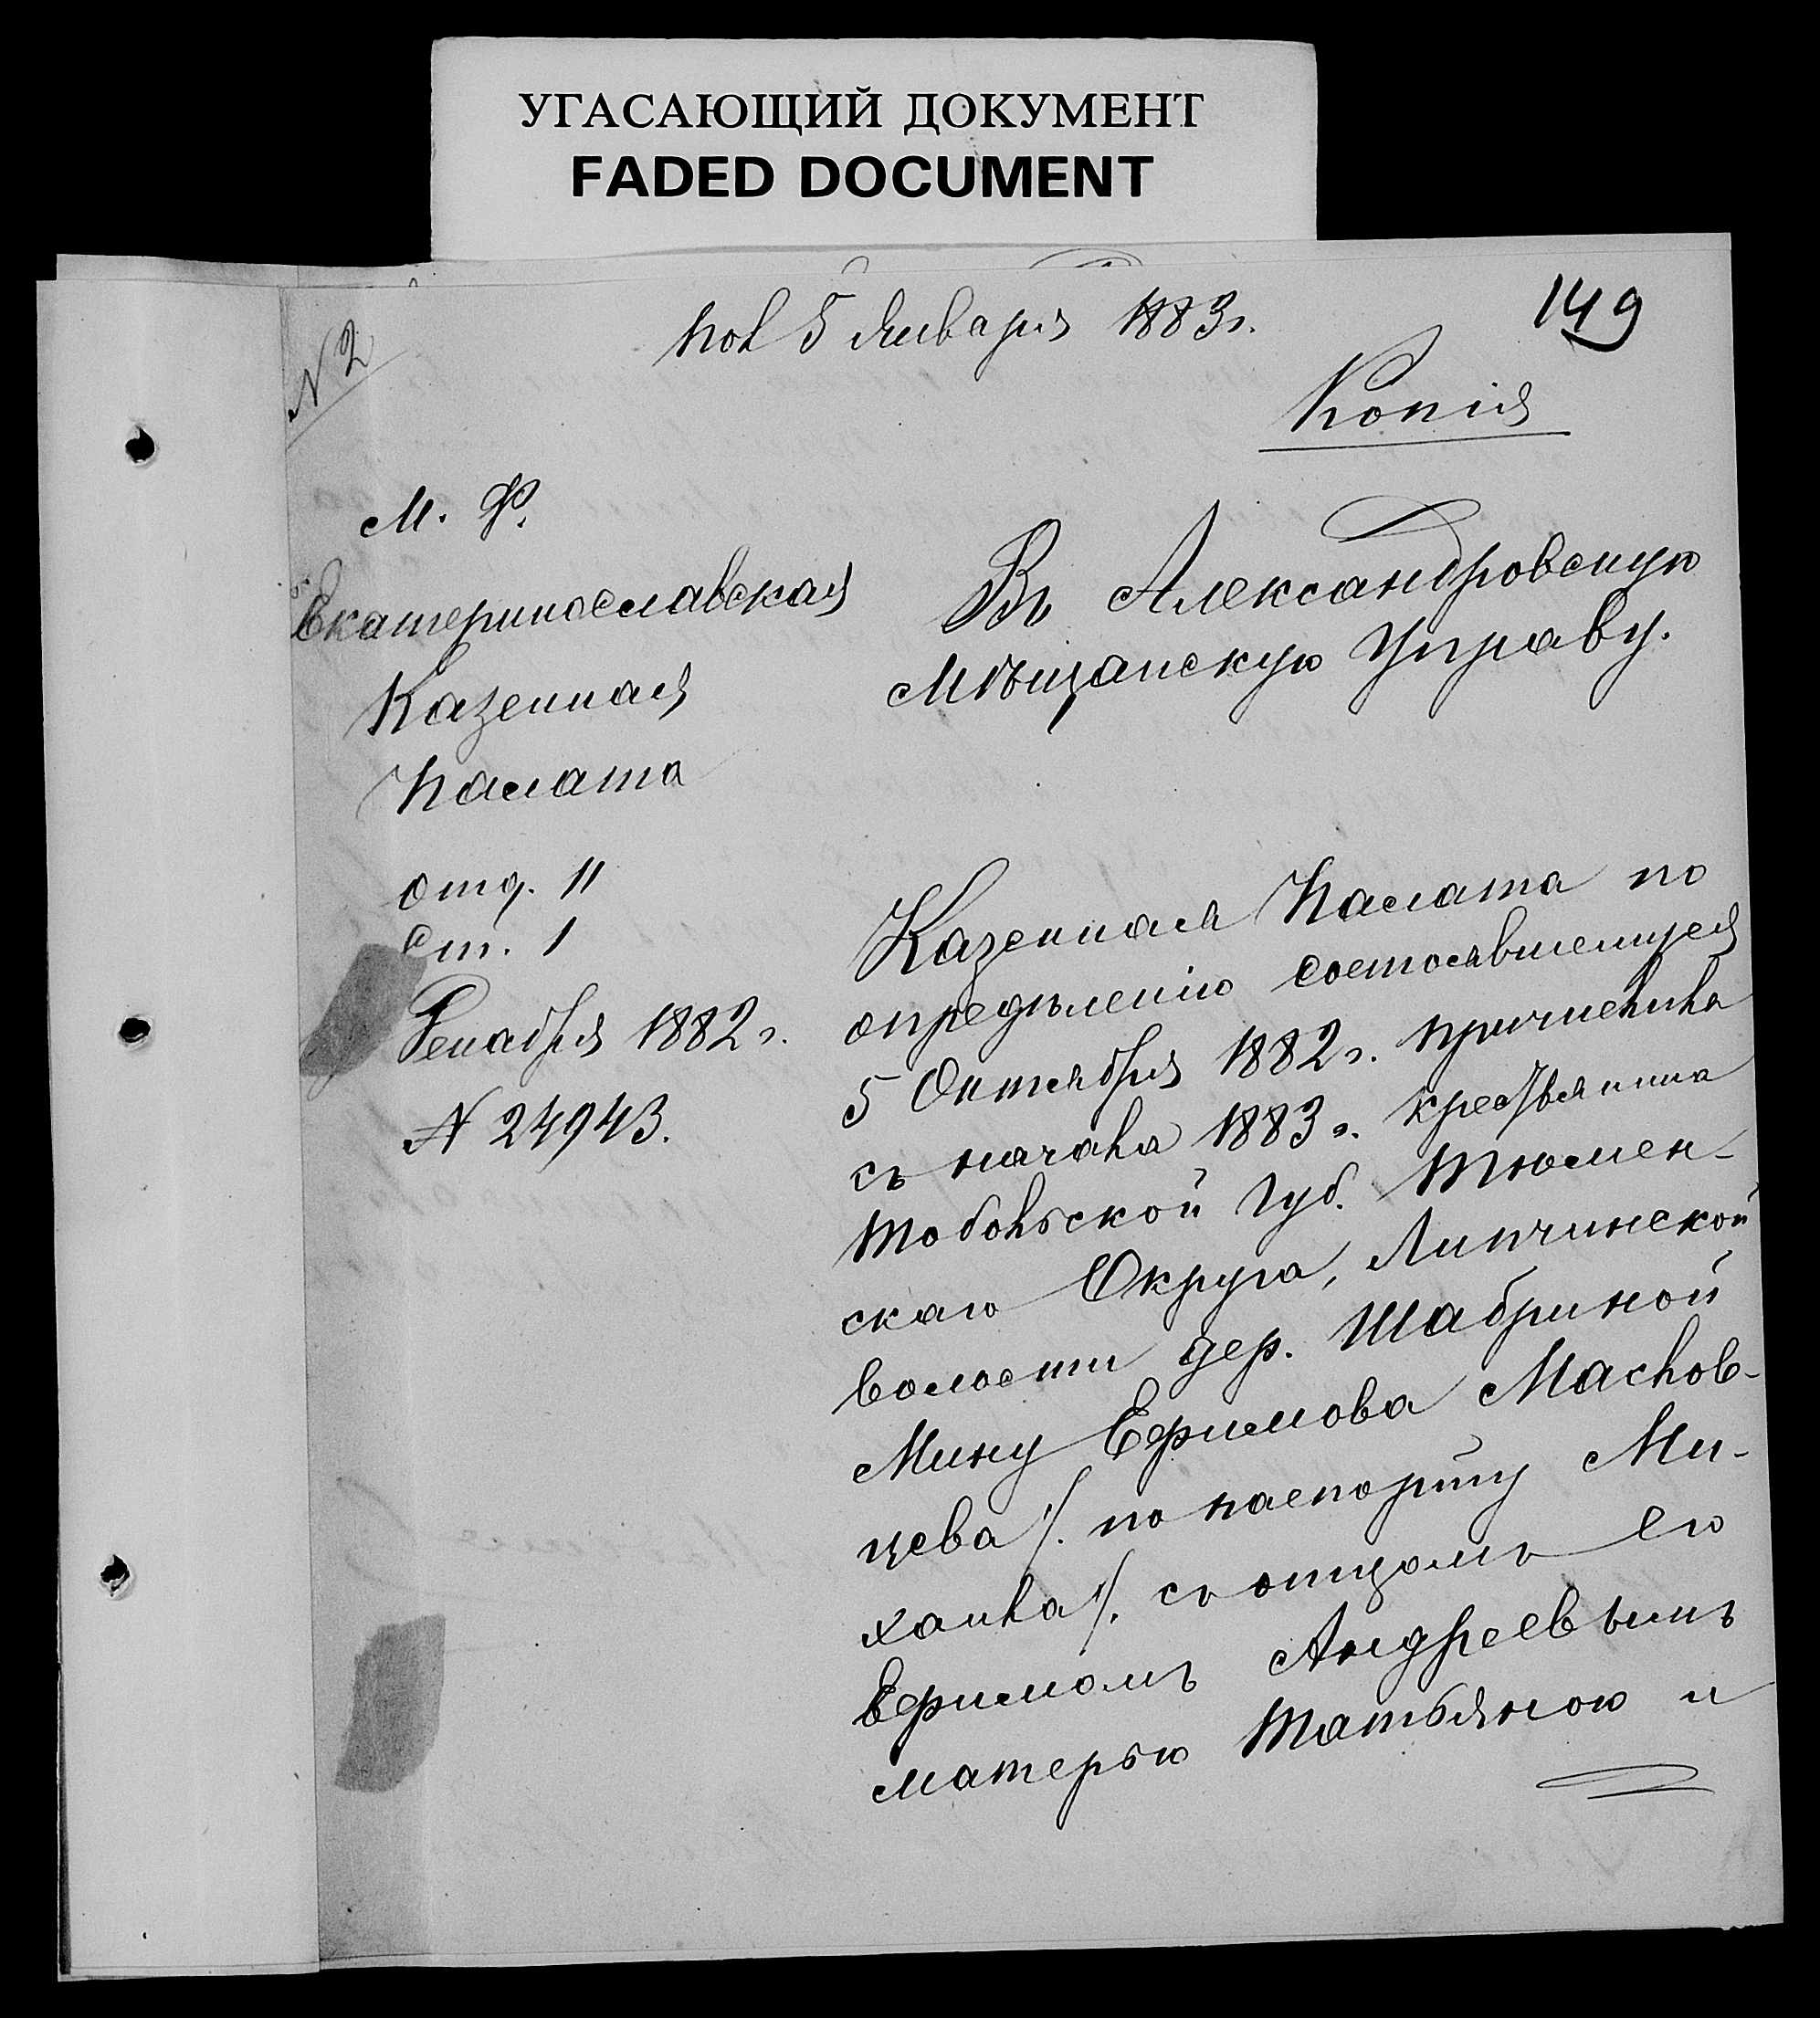 УГАСАЮЩИЙ ДОКУМЕНТ
FADED DOCUMENT
N 2
пол 5 Января 1883 г.
149
Копія
М. Ф.
Екатеринославская
Казенная
Палата
отд. II
Ст. 1
Декабря 1882 г.
N 24943.
Въ Александровскую
Мѣщанскую Управу.
Казенная Палата по
опредѣленію состоявшемуся
5 Октября 1882 г. причислила
съ начала 1883 г. крестьянина
Тобольской Губ. Тюмен-
скаго Округа, Липчинской
волости дер. Шабриной
Мину Ефимова Маслов-
цева /. по паспорту Ми-
хаила /. съ отцомъ его
Ефимомъ Андреевымъ
матерью Татьяною и